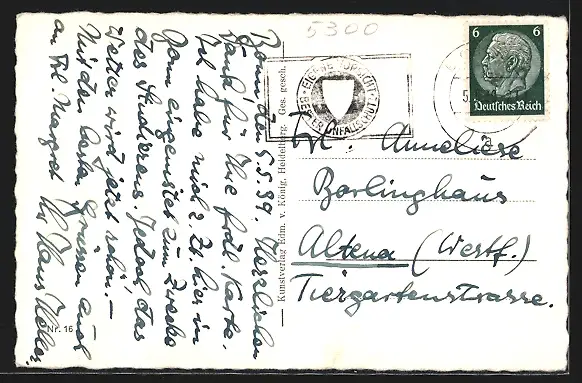 5300
Bonn den 5.5.39. Herzlichen
Dank für Ihre frdl. Karte.
Ich habe mich z. Zt. hier in
Bonn eingenistet zum Zwecke
des Studierens. Jedoch das
Wetter wird jetzt schön. –
Mit den besten Grüssen auch
an Frl. Margret Ihr Hans
Nr. 16
Kunstverlag Edm. v. König, Heidelberg. Ges. gesch.
6 6
Deutsches Reich
5.
Frl. Anneliese
Berlinghaus
Altena (Westf.)
Tiergartenstrasse.